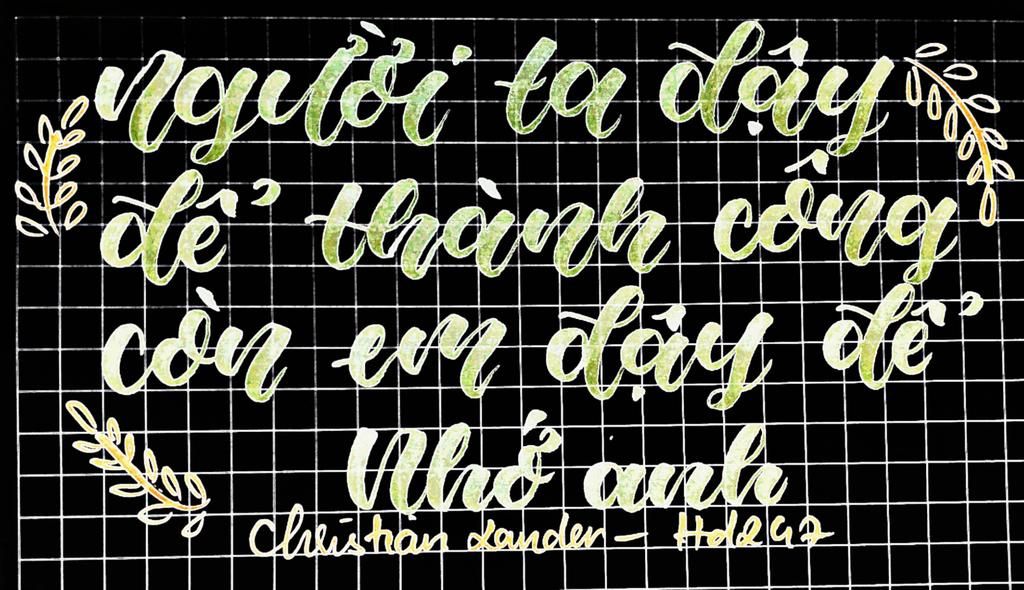 người ta dậy
để thành công
còn em dậy để
Nhớ anh
Christian Lander –